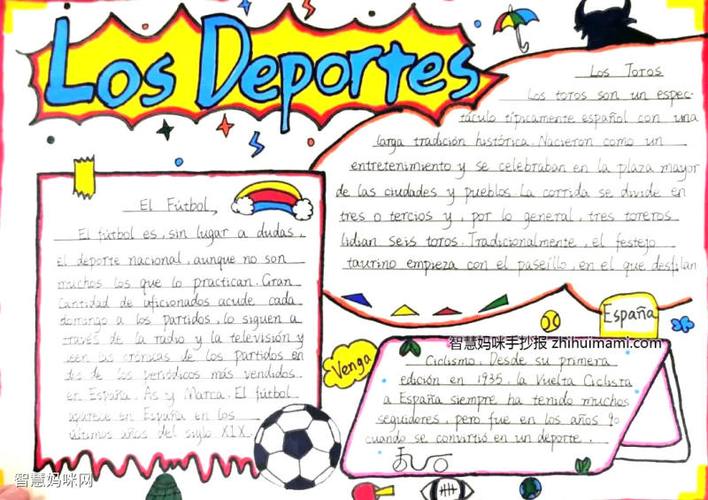 Los Deportes
Los Toros
Los toros son un espec-
táculo típicamente español con una
larga tradición histórica. Nacieron como un
entretenimiento y se celebraban en la plaza mayor
de las ciudades y pueblos. La corrida se divide en
tres o tercios y, por lo general, tres toreros
lidian seis toros. Tradicionalmente, el festejo
taurino empieza con el paseíllo, en el que desfilan
El Fútbol
El fútbol es, sin lugar a dudas,
el deporte nacional, aunque no son
muchos los que lo practican. Gran
cantidad de aficionados acude cada
domingo a los partidos, lo siguen a
través de la radio y la televisión y
leen las crónicas de los partidos en
de los periódicos más vendidos
en España. As y Marca. El fútbol
aparece en España en los
últimos años del siglo XIX.
España
智慧妈咪手抄报 zhihuimami.com
Venga
Ciclismo. Desde su primera
edición en 1935, la Vuelta Ciclista
a España siempre ha tenido muchos
seguidores, pero fue en los años 90
cuando se convirtió en un deporte.
智慧妈咪网